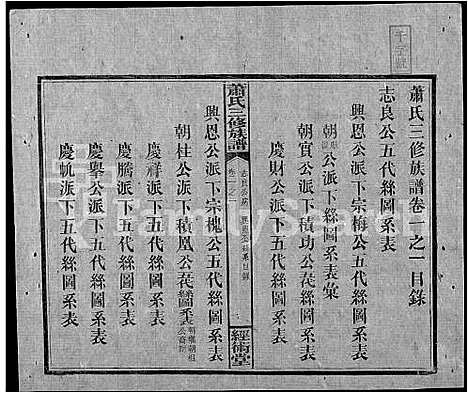 蕭氏三修族譜卷二之一目錄
志良公五代絲圖系表
興恩公派下宗梅公五代絲圖系表
朝 公派下絲圖系表彙
朝實公派下積功公茋絲圖系表
慶財公派下五代絲圖系表
蕭氏三修族譜
卷二之一
經術堂
興恩公派下宗槐公五代絲圖系表
朝柱公派下積凰公茋絲圖系表
慶祥公派下五代絲圖系表
慶騰派下五代絲圖系表
慶擧公派下五代絲圖系表
慶帆派下五代絲圖系表
FamilySearch